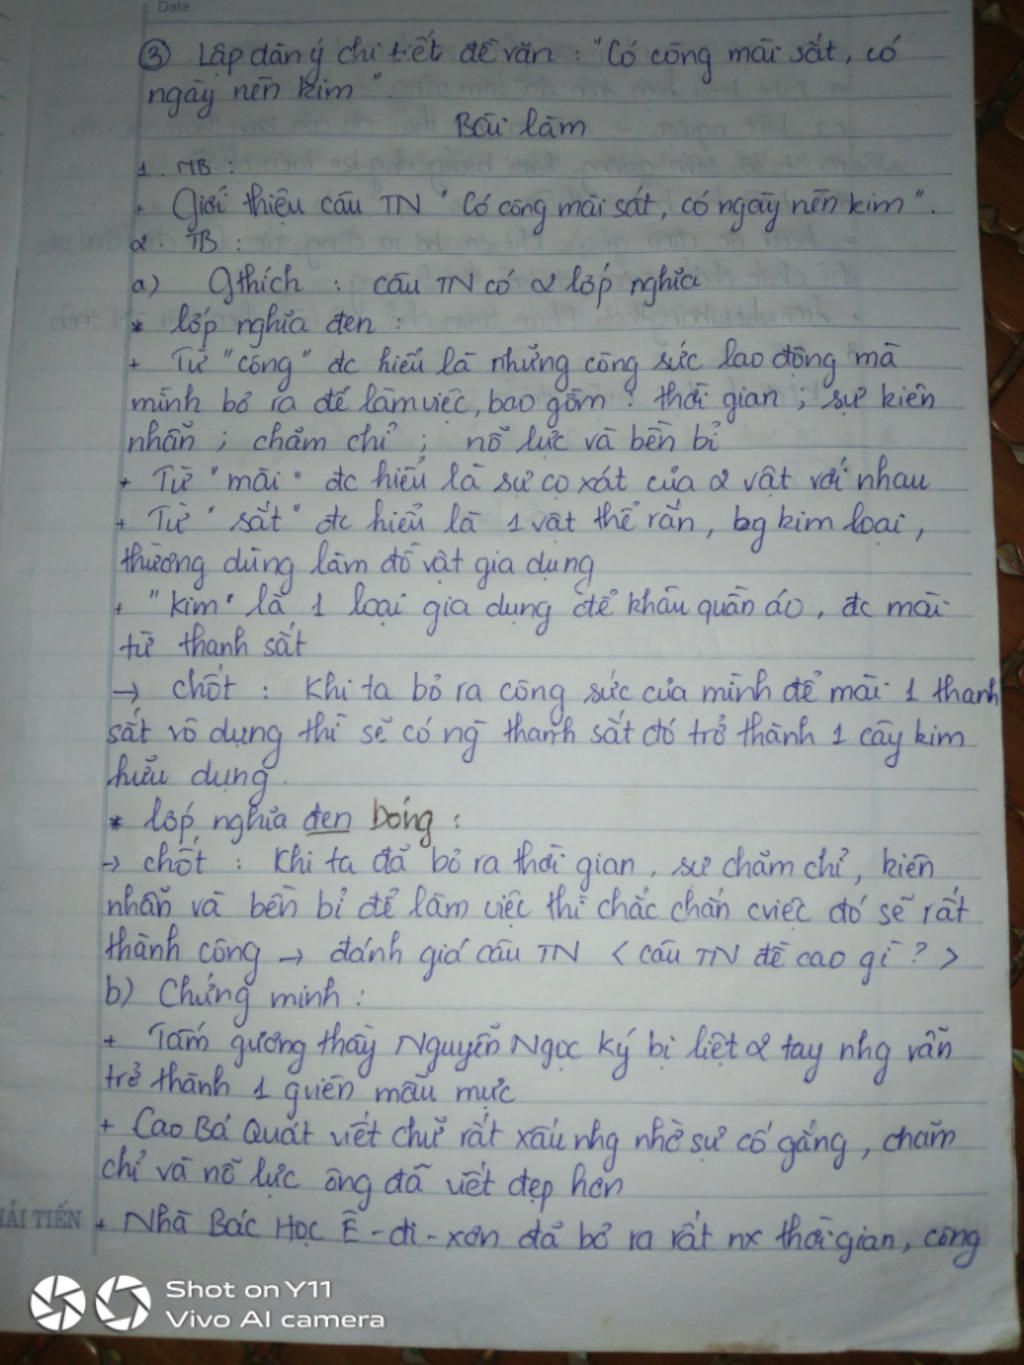 Date
③ Lập dàn ý chi tiết đề văn : "Có công mài sắt, có
ngày nên kim".
Bài làm
1. MB :
+ Giới thiệu câu TN "Có công mài sắt, có ngày nên kim".
2. TB :
a) Gthích : câu TN có 2 lớp nghĩa
* lớp nghĩa đen :
+ Từ "công" đc hiểu là những công sức lao động mà
mình bỏ ra để làm việc, bao gồm : thời gian ; sự kiên
nhẫn ; chăm chỉ ; nỗ lực và bền bỉ
+ Từ "mài" đc hiểu là sự cọ xát của 2 vật với nhau
+ Từ "sắt" đc hiểu là 1 vật thể rắn, bg kim loại,
thường dùng làm đồ vật gia dụng
+ "kim" là 1 loại gia dụng để khâu quần áo, đc mài
từ thanh sắt
→ chốt : Khi ta bỏ ra công sức của mình để mài 1 thanh
sắt vô dụng thì sẽ có ng` thanh sắt đó trở thành 1 cây kim
hữu dụng.
* lớp nghĩa đen bóng :
→ chốt : Khi ta đã bỏ ra thời gian, sự chăm chỉ, kiên
nhẫn và bền bỉ để làm việc thì chắc chắn cviệc đó sẽ rất
thành công → đánh giá câu TN < câu TN đề cao gì ? >
b) Chứng minh :
+ Tấm gương thầy Nguyễn Ngọc Ký bị liệt 2 tay nhg vẫn
trở thành 1 gviên mẫu mực
+ Cao Bá Quát viết chữ rất xấu nhg nhờ sự cố gắng, chăm
chỉ và nỗ lực ông đã viết đẹp hơn
HẢI TIẾN
+ Nhà Bác Học Ê-đi-xơn đã bỏ ra rất nx thời gian, công
Shot on Y11
Vivo AI camera